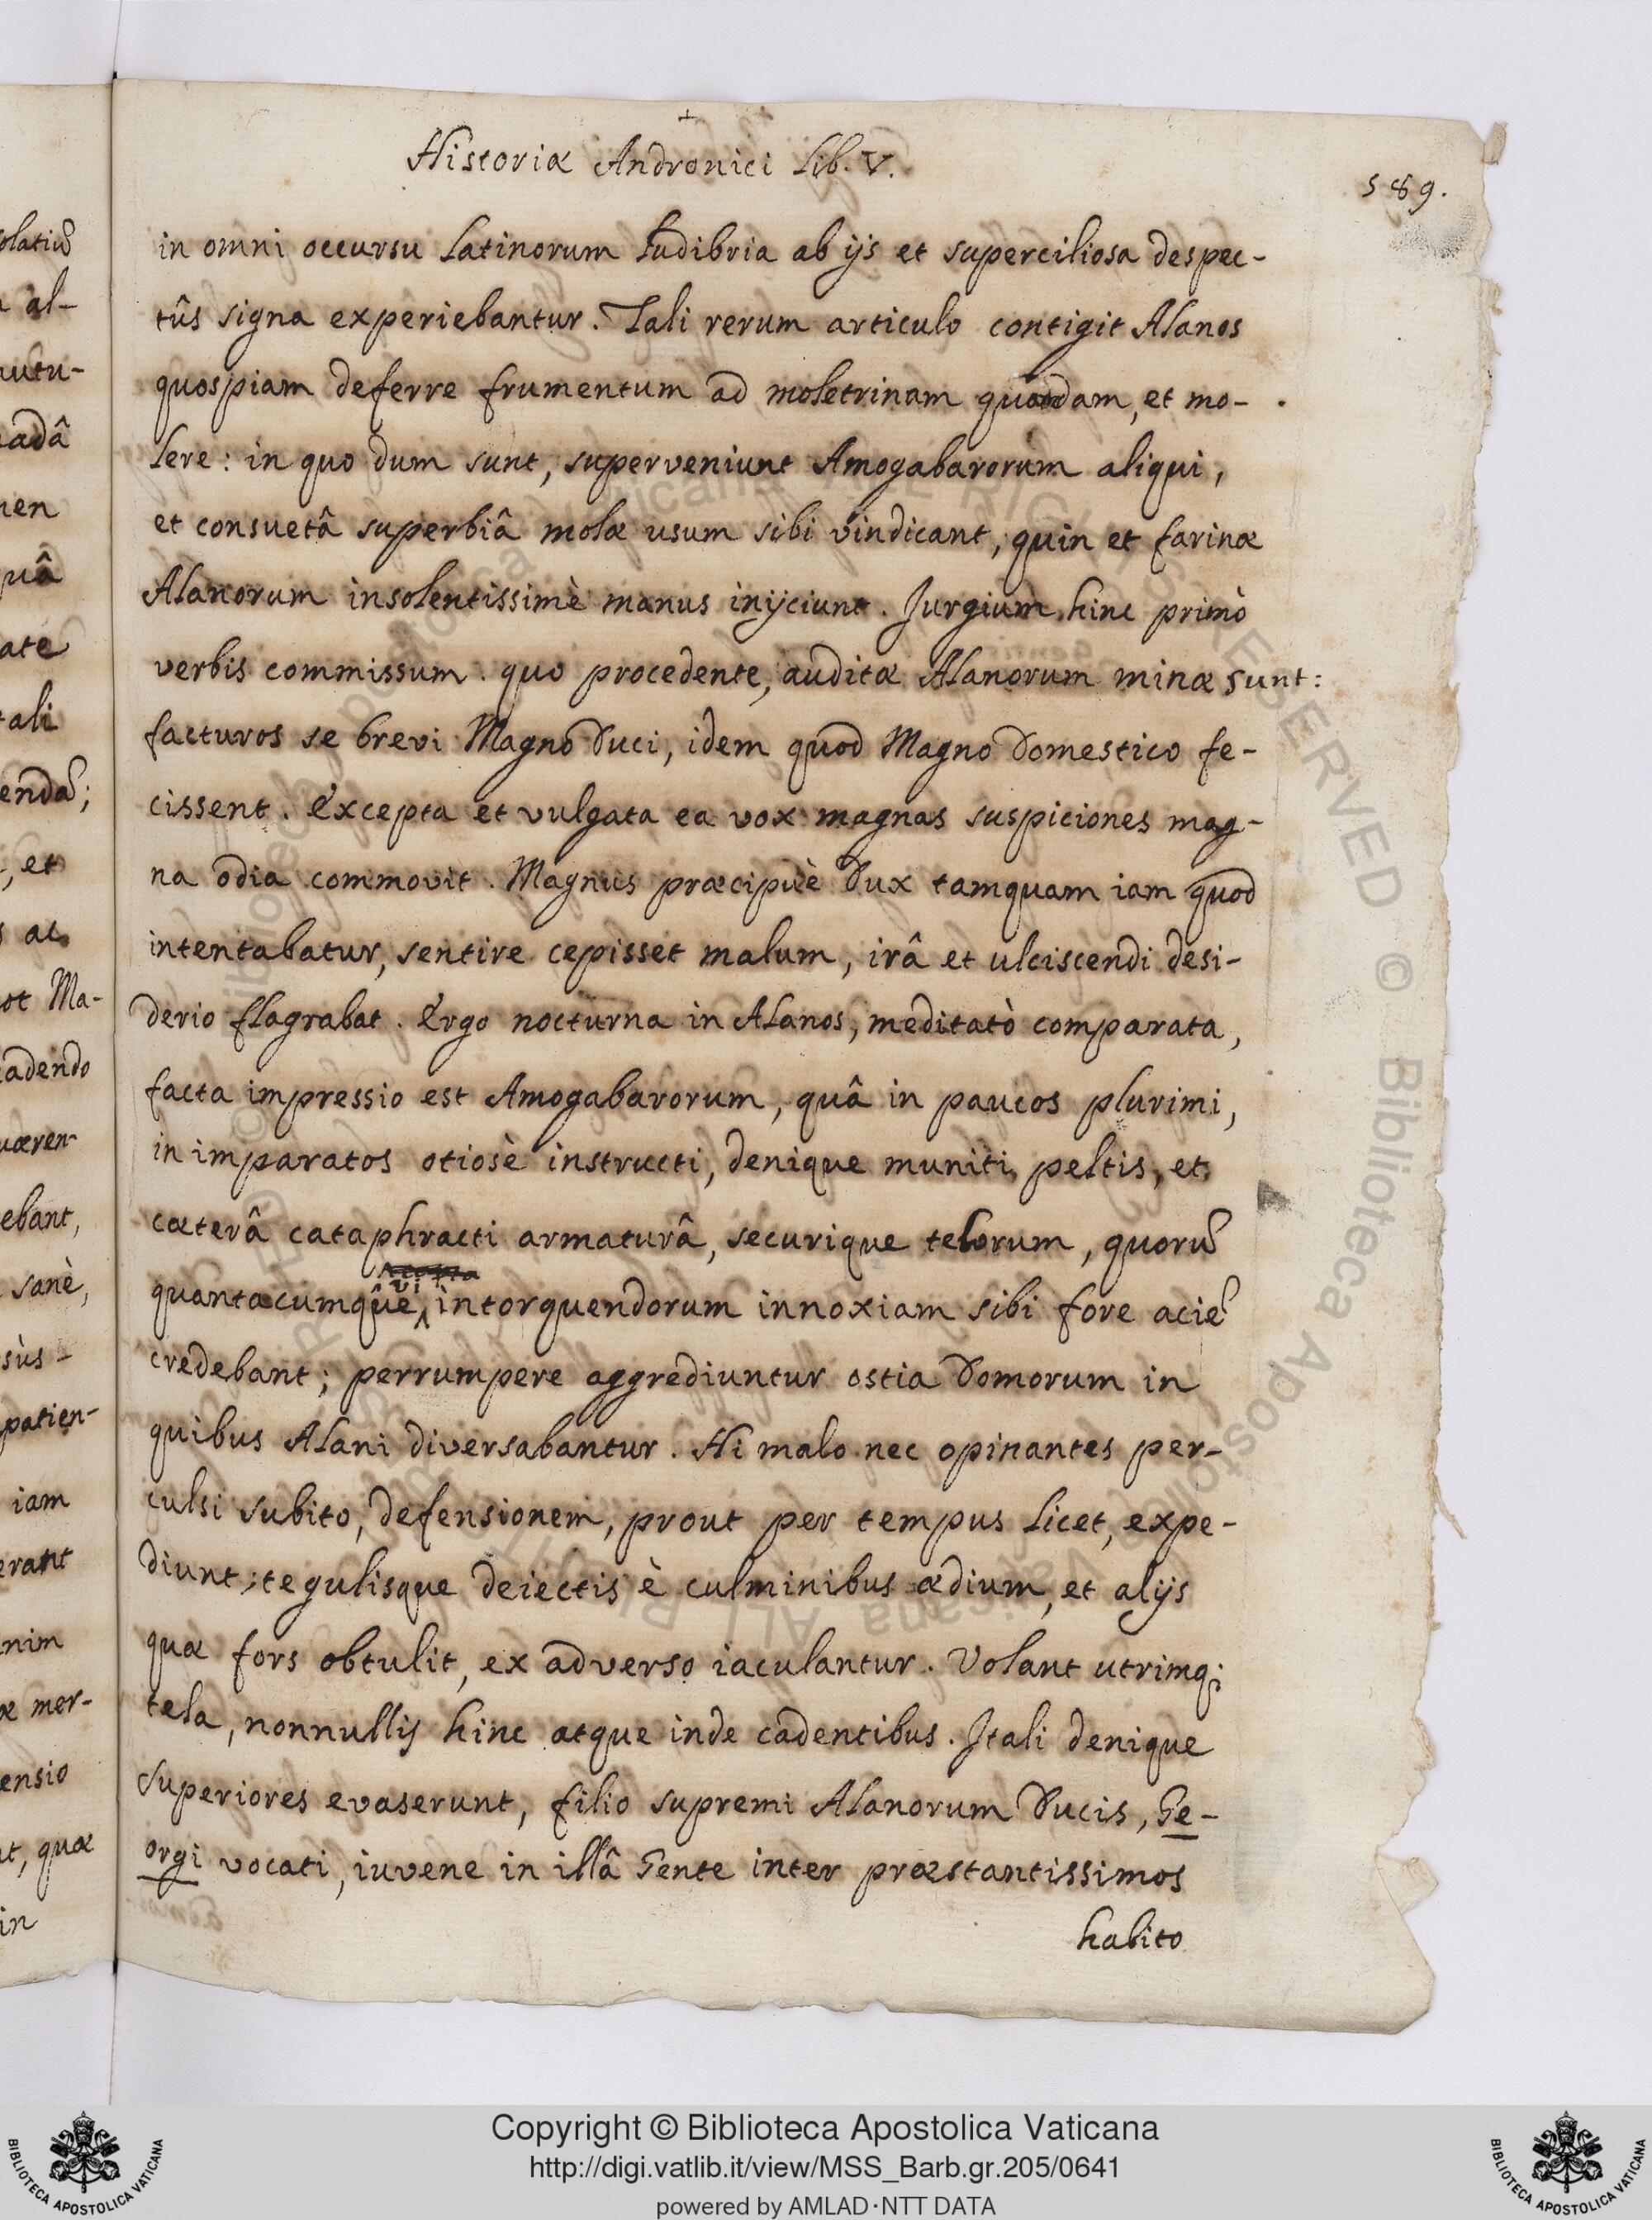 Historiæ Andronici Lib. V.
589.
in omni occursu Latinorum ludibria ab ijs et superciliosa despec-
tûs signa experiebantur. Tali rerum articulo contigit Alanos
quospiam deferre frumentum ad moletrinam quandam, et mo-
lere: in quo dum sunt, superveniunt Amogabarorum aliqui,
et consuetâ superbiâ molæ usum sibi vindicant, quin et farinæ
Alanorum insolentissimè manus inijciunt. Jurgium hinc primò
verbis commissum. quo procedente, auditæ Alanorum minæ sunt:
facturos se brevi Magno Duci, idem quod Magno Domestico fe-
cissent. Excepta et vulgata ea vox magnas suspiciones mag-
na odia commovit. Magnus præcipuè Dux tamquam iam quod
intentabatur, sentire cepisset malum, irâ et ulciscendi desi-
derio flagrabat. Ergo nocturna in Alanos, meditatò comparata,
facta impressio est Amogabarorum, quâ in paucos plurimi,
in imparatos otiosè instructi, denique muniti peltis, et
cæterâ cataphracti armaturâ, securique telorum, quorũ
quantacumque vi intorquendorum innoxiam sibi fore aciẽ
credebant; perrumpere aggrediuntur ostia Domorum in
quibus Alani diversabantur. Hi malo nec opinantes per-
culsi subito, defensionem, prout per tempus licet, expe-
diunt; tegulisque deiectis è culminibus ædium, et alijs
quæ fors obtulit, ex adverso iaculantur. Volant utrimq;
tela, nonnullis hinc atque inde cadentibus. Itali denique
superiores evaserunt, filio supremi Alanorum Ducis, Ge-
orgi vocati, iuvene in illâ Gente inter præstantissimos
habito
olatiũ
al-
adâ
quâ
ate
tali
endã;
, et
ac
ot Ma-
adendo
æren-
ebant,
sanè,
sùs-
patien-
iam
erant
nim
æ mer-
ensio
t, quæ
in
Copyright © Biblioteca Apostolica Vaticana
http://digi.vatlib.it/view/MSS_Barb.gr.205/0641
powered by AMLAD·NTT DATA
BIBLIOTECA APOSTOLICA VATICANA
BIBLIOTECA APOSTOLICA VATICANA